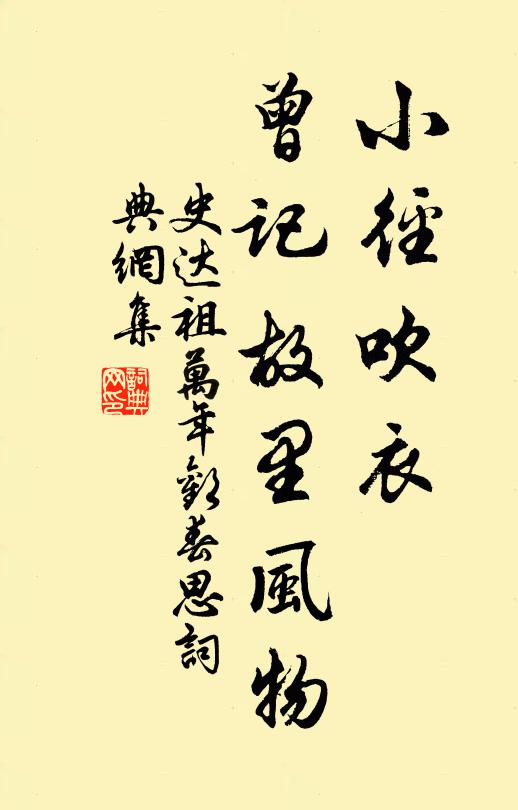 小徑吹衣
曾記故里風物
史达祖萬年歡春思詞
典網集
詞典網印